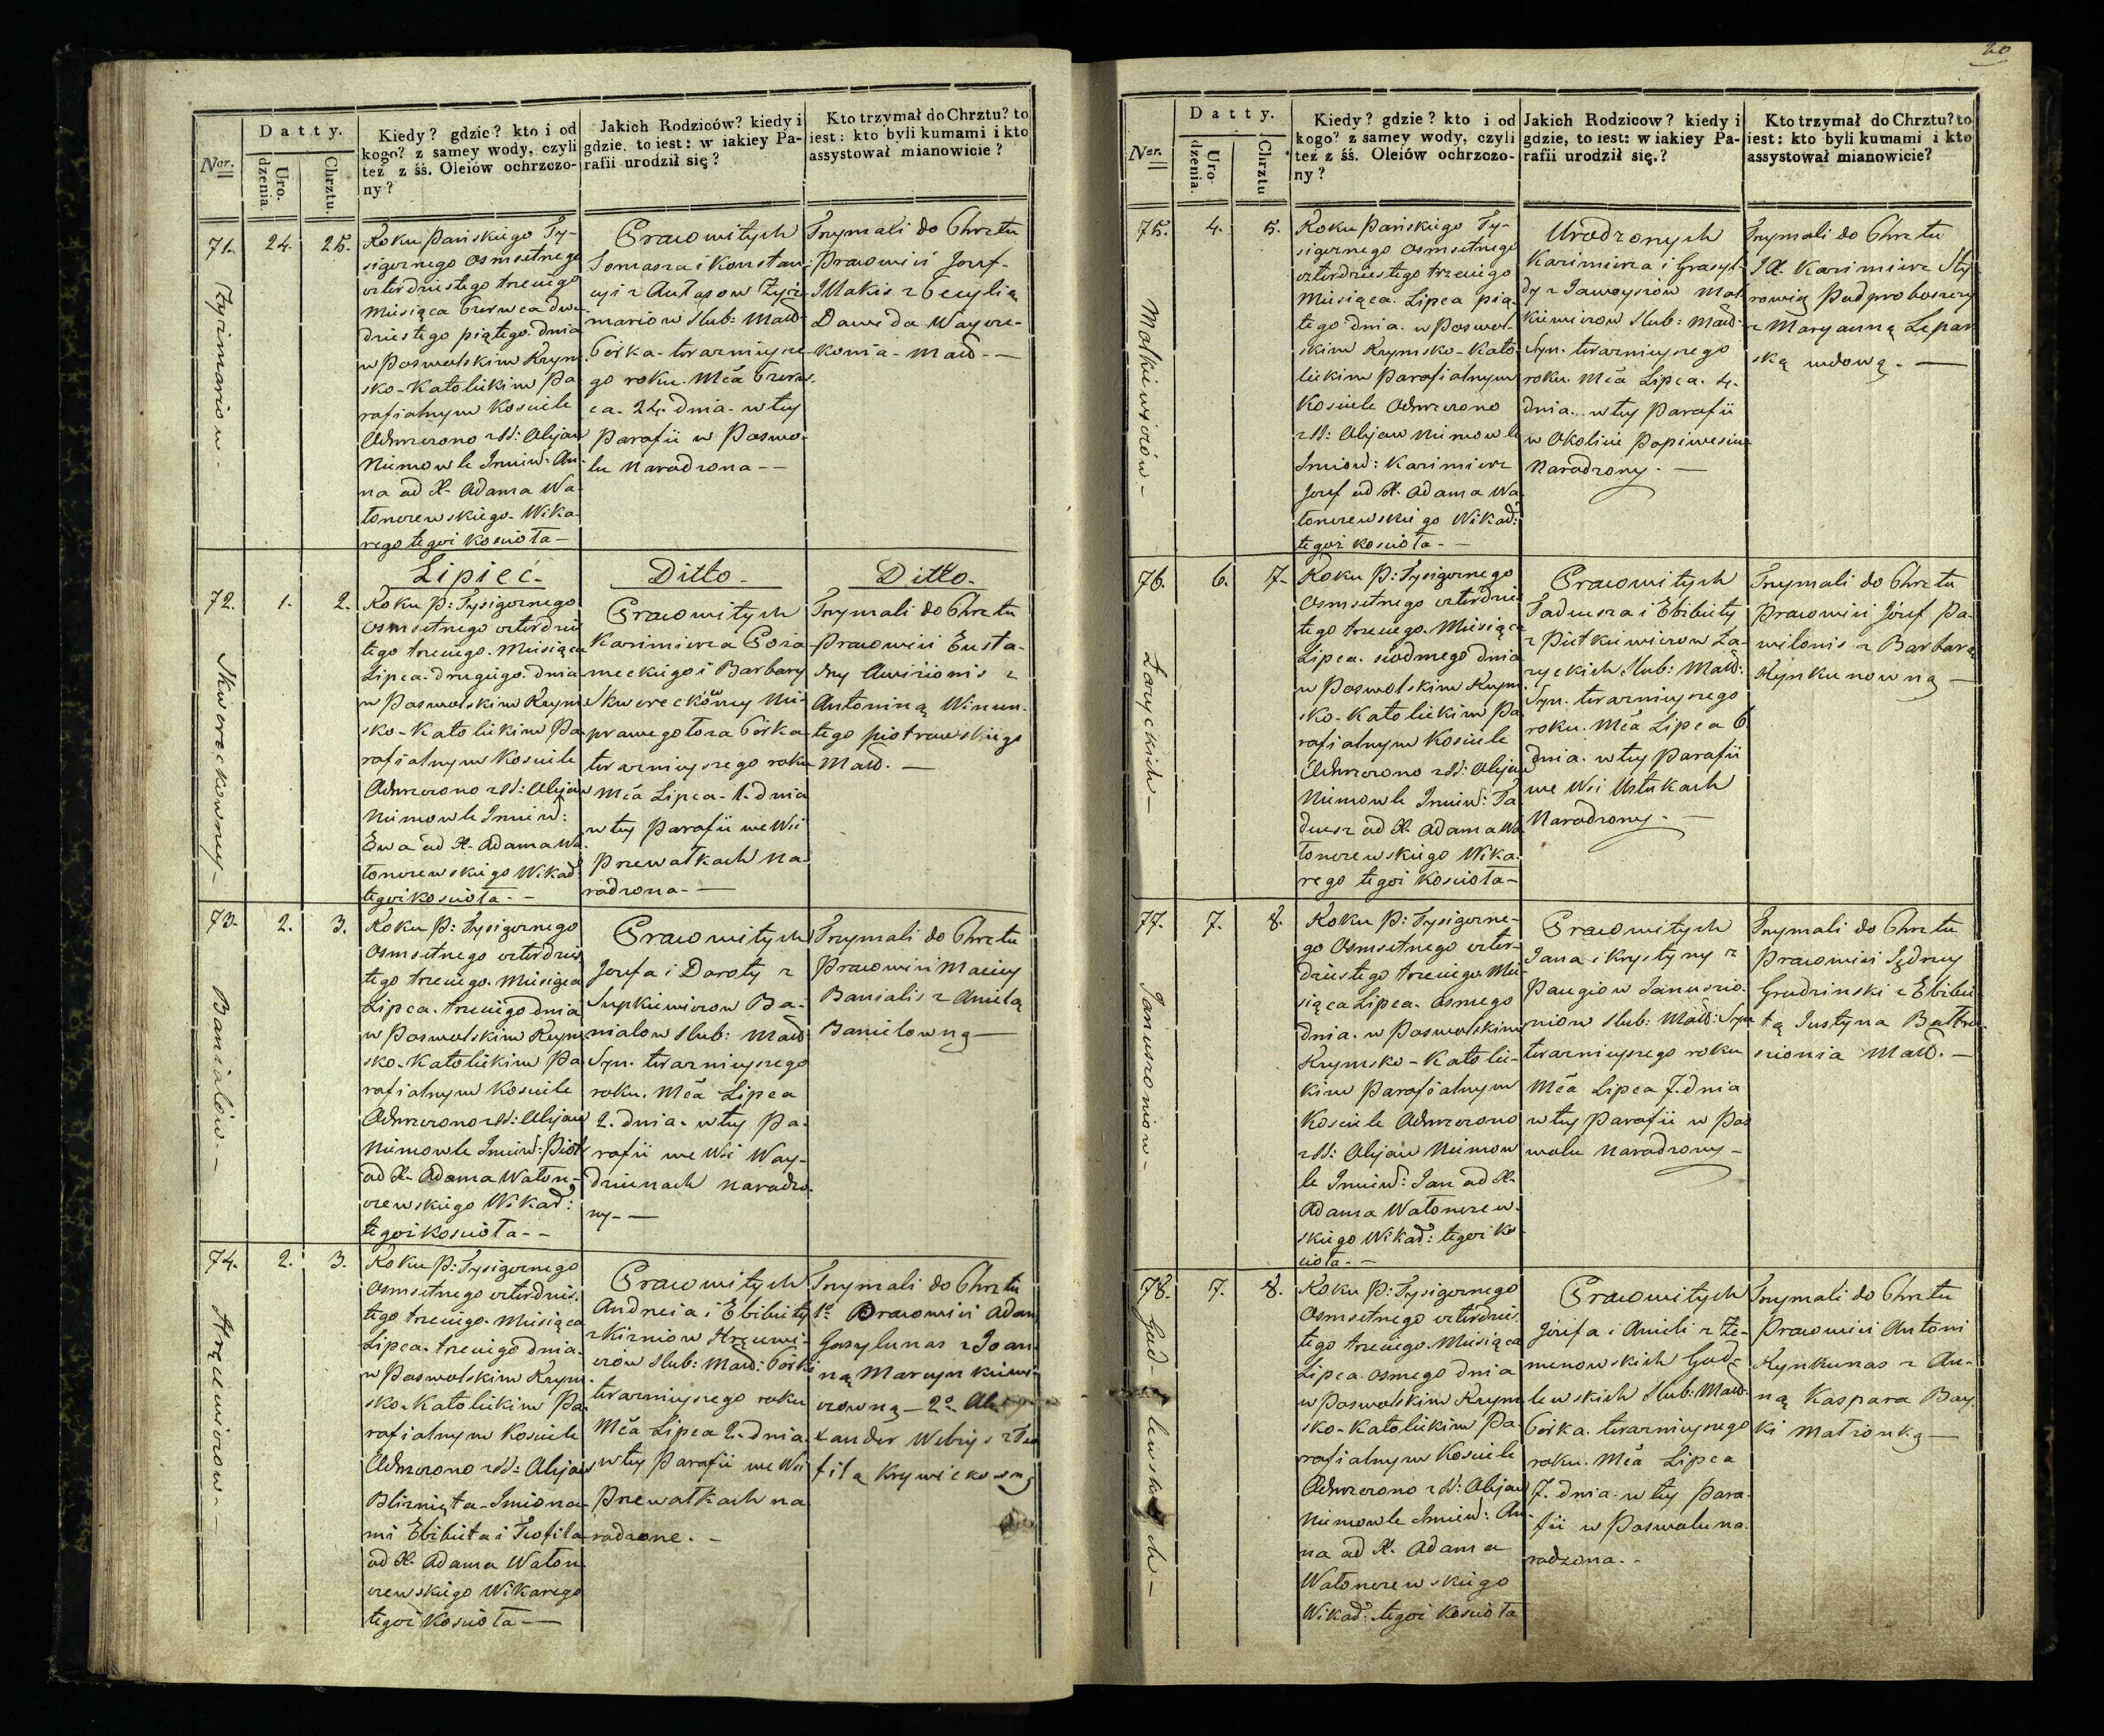 Ner.
Datty.
Uro-
dzenia.
Chrztu.
Kiedy? gdzie? kto i od
kogo? z samey wody, czyli
też z śś. Oleiów ochrzczo-
ny?
Jakich Rodziców? kiedy i
gdzie, to iest: w iakiey Pa-
rafii urodził się?
Kto trzymał do Chrztu? to
iest: kto byli kumami i kto
assystował mianowicie?
71.
24.
25.
Roku Pańskiego Ty-
siącznego osmsetnego
czterdziestego trzeciego
Miesiąca Czerwca dwu-
dziestego piątego dnia
w Poswolskim Rzym-
sko-Katolickim Pa-
rafialnym Kosciele
Ochrzczono z SS: Olejów
Niemowle Imien: An-
na od X. Adama Wa-
tonczewskiego Wika-
rego tegoż Kosciola
Pracowitych
Tomasza i Konstan-
cyi z
mariow Slub: Małż:
Córka. teraznieysze-
go roku. Mca Czerw-
ca. 24. dnia. w tey
Parafii w Poswo-
lu Narodzona
Trzymali do Chrztu
Pracowici Jozef
Makis z Cecylią
Dawida Waycie-
konia Małż.
Lipiec
Ditto
Ditto
72.
Skworeckowney
1.
2.
Roku P: Tysiącznego
osmsetnego czterdzies
tego trzeciego. Miesiąca
Lipca. drugiego dnia
w Poswolskim Rzym
sko-Katolickim Pa
rafialnym Kosciele
Ochrzczono z SS: Olejów
Niemowle Imien:
Ewa od X. Adama Wa
tonczewskiego Wikar:
tegoż kosciola
Pracowitych
Kazimierza
meckiego i Barbary
Skworeckówny Nie-
prawego łoża Córka
teraznieyszego roku
Mca Lipca. 1. dnia
w tey Parafii we Wsi
Przewałkach Na
rodzona
Trzymali do Chrztu
Pracowici Eusta-
chy Awizionis z
Antoniną Wincen-
tego Piotrowskiego
Małż.
73.
Banialów
2.
3.
Roku P: Tysiącznego
osmsetnego czterdzies
tego trzeciego. Miesiąca
Lipca. trzeciego dnia
w Poswolskim Rzym
sko-Katolickim Pa
rafialnym Kosciele
Ochrzczono z SS: Olejów
Niemowle Imien: Piotr
od X. Adama Waton-
czewskiego Wikar:
tegoż kosciola
Pracowitych
Jozefa i Doroty z
Supkiewiczow Ba-
nialow Slub: Małż
Syn. teraznieyszego
roku. Mca Lipca
2. dnia. w tey Pa-
rafii we Wsi Way-
dziunach narodzo-
ny
Trzymali do Chrztu
Pracowici Maciey
Banialis z Anielą
Banielowną
74.
2.
3.
Roku P: Tysiącznego
osmsetnego czterdzies
tego trzeciego. Miesiąca
Lipca. trzeciego dnia.
w Poswolskim Rzym
sko-Katolickim Pa
rafialnym Kosciele
Ochrzczono z SS: Olejów
Blizniąta Imiona-
mi Elżbieta i Teofila
od X. Adama Waton
czewskiego Wikarego
tegoż Kosciola
Pracowitych
Andrzeia i Elżbiety
z Kirniow
Slub: Małż: Córki
teraznieyszego roku
Mca Lipca 2. dnia.
w tey Parafii we Wsi
Przewałkach na
rodzone.
Trzymali do Chrztu
1º Pracowici Adam
Gasylunas z Joan-
ną Marcynkiewi-
czowną 2º
xander Webrys z Teo
filą
20
Ner.
Datty.
Uro-
dzenia.
Chrztu
Kiedy? gdzie? kto i od
kogo? z samey wody, czyli
też z śś. Oleiów ochrzczo-
ny?
Jakich Rodzicow? kiedy i
gdzie, to iest: w iakiey Pa-
rafii urodził się.?
Kto trzymał do Chrztu? to
iest: kto byli kumami i kto
assystował mianowicie?
75.
Matkiewiczów
4.
5.
Roku Pańskiego Ty-
siącznego osmsetnego
czterdziestego trzeciego
Miesiąca. Lipca pią-
tego dnia. w Poswol-
skim Rzymsko-Kato-
lickim Parafialnym
Kosciele Ochrzczono
z SS: Olejów Niemowle
Imion: Kazimierz
Jozef od X. Adama Wa
tonczewskiego Wikar:
tegoż kosciola
Urodzonych
Kazimierza i Grasyl-
dy z Zawoyszów Mat
kiewiczow Slub: Małż:
Syn. teraznieyszego
roku. Mca Lipca. 4.
dnia. w tey Parafii
w Okolicy
Narodzony.
Trzymali do Chrztu
JX. Kazimierz
Podproboszczy
z Maryanną Lepar
ską wdową.
76.
6.
7.
Roku P: Tysiącznego
Osmsetnego czterdzies
tego trzeciego. Miesiąca
Lipca. siodmego dnia
w Poswolskim Rzym
sko-Katolickim Pa
rafialnym Kosciele
Ochrzczono z SS: Olejów
Niemowle Imien: Ta
deusz od X. Adama Wa
tonczewskiego Wika-
rego tegoż Kosciola
Pracowitych
Tadeusza i Elżbiety
z Pietkiewiczow Za-
ryckich Slub: Małż:
Syn. teraznieyszego
roku. Mca Lipca 6
dnia. w tey Parafii
we Wsi Ustukach
Narodzony.
Trzymali do Chrztu
Pracowici Józef Pa-
wilonis z Barbarą
Rynkunowną
77.
Januszoniow
7.
8.
Roku P: Tysiączne-
go Osmsetnego czter-
dziestego trzeciego Mie-
siąca Lipca. osmego
dnia. w Poswolskim
Rzymsko-Katolic-
kim Parafialnym
Kosciele Ochrzczono
z SS: Olejów Niemow
le Imien: Jan od X.
Adama Watonczew-
skiego Wikar: tegoż Ko
sciola
Pracowitych
Jana i Krystyny z
Paugiow Januszo-
niow Slub: Małż: Syn
teraznieyszego roku
Mca Lipca 7. dnia
w tey Parafii w Pos
wolu Narodzony
Trzymali do Chrztu
Pracowici Jędrzey
Grudzinski z Elżbie
tą Justyna Baltru-
szionia Małż.
78.
7.
8.
Roku P: Tysiącznego
Osmsetnego czterdzies
tego trzeciego. Miesiąca
Lipca. osmego dnia
w Poswolskim Rzym
sko-Katolickim Pa-
rafialnym Kosciele
Ochrzczono z SS: Olejów
Niemowle Imien: An-
na od X. Adama
Watonczewskiego
Wikar: tegoż Kosciola
Pracowitych
Józefa i Anieli z Ze-
menowskich God-
lewskich Slub: Małż.
Córka. teraznieyszego
roku. Mca Lipca
7. dnia. w tey Para-
fii w Poswolu na
rodzona.
Trzymali do Chrztu
Pracowici Antoni
Rynkunas z An-
ną Kaspara Bay-
ki Małżonką